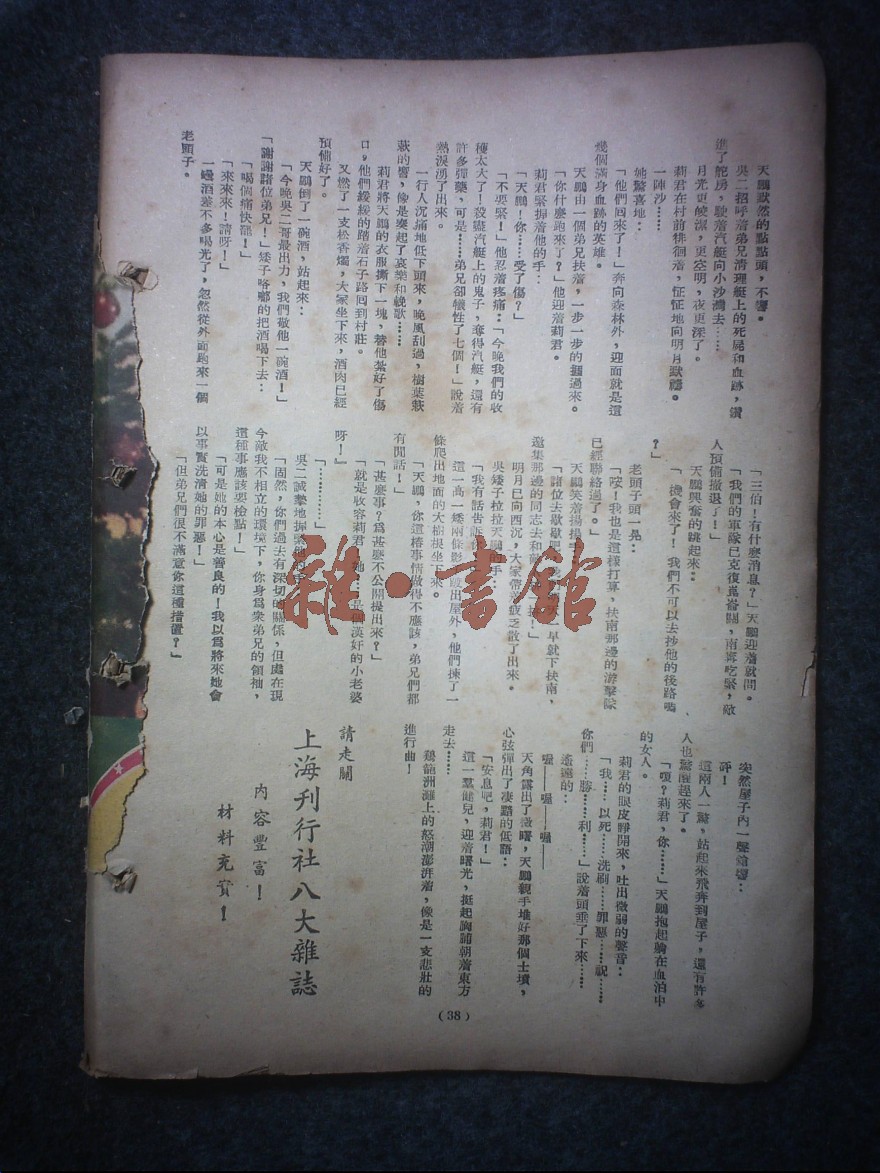 天鵬默然的點點頭，不響。
吳二招呼着弟兄清理艇上的死屍和血跡，鑽
進了舵房，駛着汽艇向小沙灣去……
月光更皎潔，更空明，夜更深了。
莉君在村前徘徊着，怔怔地向明月默禱。
一陣沙……
她驚喜地：
「他們回來了！」奔向森林外，迎面就是這
幾個滿身血跡的英雄。
天鵬由一個弟兄扶着，一步一步的捱過來。
「你什麼跑來了？」他迎着莉君。
莉君緊握着他的手：
「天鵬！你……受了傷？」
「不要緊！」他忍着疼痛：「今晚我們的收
穫太大了！殺盡汽艇上的鬼子，奪得汽艇，還有
許多彈藥，可是……弟兄卻犧牲了七個！」說着
熱淚湧了出來。
一行人沉痛地低下頭來，晚風刮過，樹葉簌
簌的響，像是奏起了哀樂和輓歌……
莉君將天鵬的衣服撕下一塊，替他紮好了傷
口，他們緩緩的踏着石子路回到村莊。
又燃了一支松香燭，大家坐下來，酒肉已經
預備好了。
天鵬倒了一碗酒，站起來：
「今晚吳二哥最出力，我們敬他一碗酒！」
「謝謝諸位弟兄！」矮子咯嘟的把酒喝下去：
「喝個痛快罷！」
「來來來！請呀！」
一罎酒差不多喝光了，忽然從外面跑來一個
老頭子。
「三伯！有什麼消息？」天鵬迎着就問。
「我們的軍隊已克復崑崙關，南寧吃緊，敵
人預備撤退了！」
天鵬興奮的跳起來：
「機會來了！我們不可以去抄他的後路嗎
？」
老頭子頭一晃：
「咹！我也是這樣打算，扶南那邊的游擊隊
已經聯絡過了。」
天鵬笑着揚揚手：
「諸位去歇歇 早就下扶南，
邀集那邊的同志去和 ！」
明月已向西沉，大家帶着疲乏散了出來。
吳矮子拉拉天鵬的手：
「我有話告訴你
這一高一矮兩條影 出屋外，他們揀了一
條爬出地面的大樹根坐下來。
「天鵬，你這樁事情做得不應該，弟兄們都
有閒話！」
「甚麼事？爲甚麼不公開提出來？」
「就是收容莉君，她……是個漢奸的小老婆
呀！」
「…………」
吳二誠摯地握緊他的手：
「固然，你們過去有深切的關係，但處在現
今敵我不相立的環境下，你身爲衆弟兄的領袖，
這種事應該要檢點！」
「可是她的本心是善良的！我以爲將來她會
以事實洗清她的罪惡！」
「但弟兄們很不滿意你這種措置？」
突然屋子內一聲槍響：
砰！
這兩人一驚，站起來飛奔到屋子，還有許多
人也驚醒起來了。
「嗄？莉君，你……」天鵬抱起躺在血泊中
的女人。
莉君的眼皮睜開來，吐出微弱的聲音：
「我……以死……洗刷……罪惡……祝……
你們……勝……利……」說着頭垂了下來……
遙遠的：
喔——喔——喔——
天角露出了微曙，天鵬親手堆好那個土墳，
心弦彈出了凄黯的低語：
「安息吧，莉君！」
這一羣健兒，迎着曙光，挺起胸脯朝着東方
走去……
鷄龍洲灘上的怒潮澎湃着，像是一支悲壯的
進行曲！
請走閱
上海刊行社八大雜誌
內容豐富！
材料充實！
（38）
雜·書館